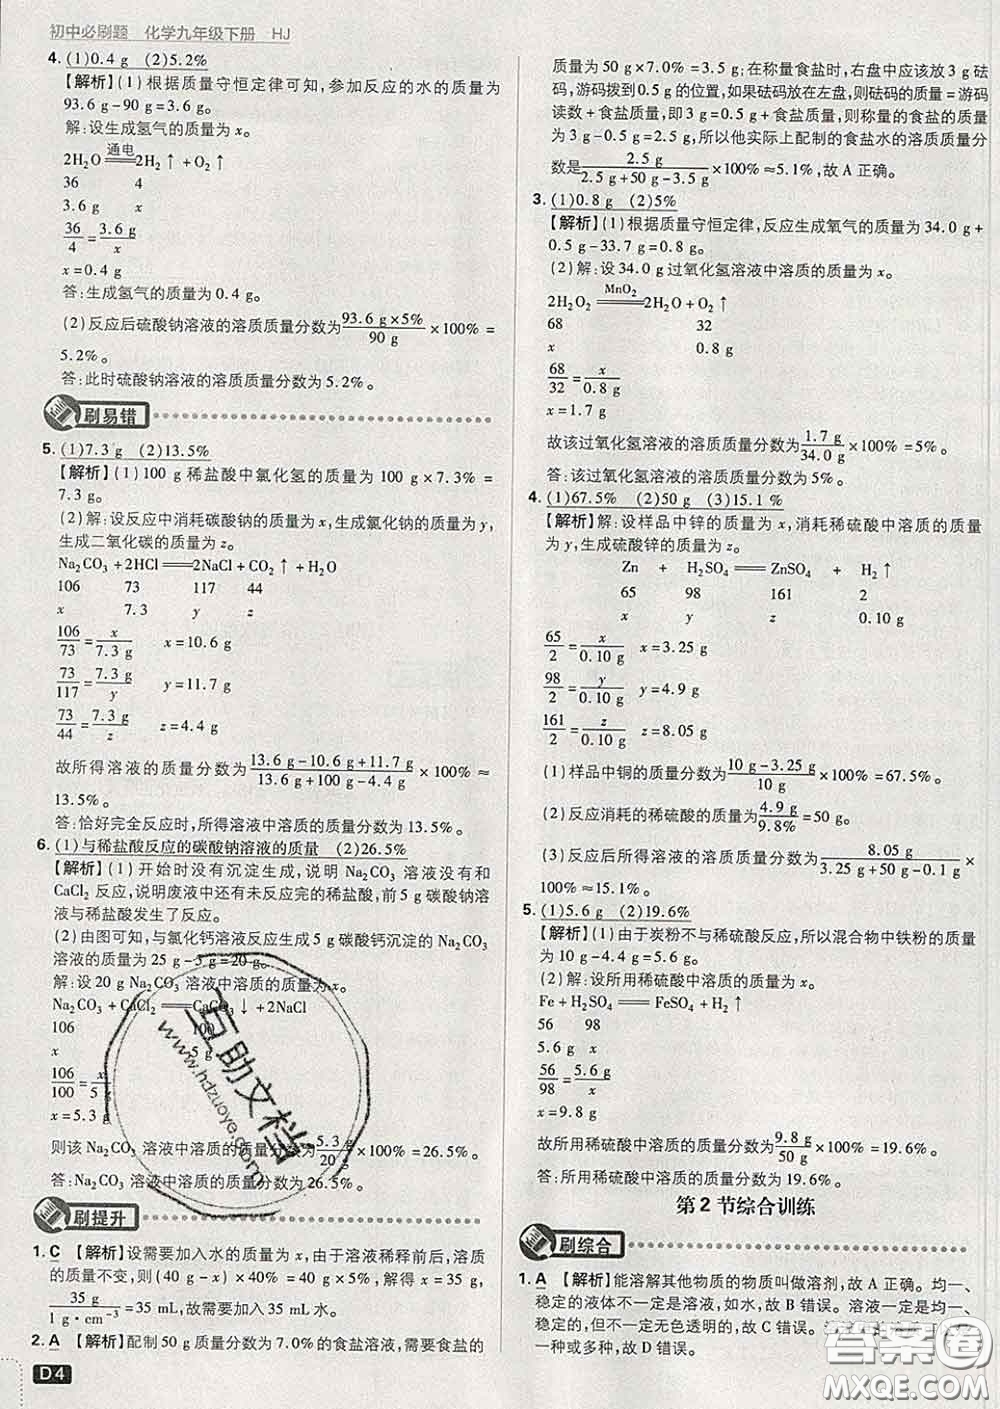 初中必刷题 化学九年级下册 HJ
4. (1)0.4 g (2)5.2%
【解析】(1)根据质量守恒定律可知,参加反应的水的质量为
93.6 g-90 g=3.6 g。
解:设生成氢气的质量为 x。
2H₂O =通电= 2H₂↑+O₂↑
36 4
3.6 g x
36/4 = 3.6 g/x
x=0.4 g
答:生成氢气的质量为 0.4 g。
(2)反应后硫酸钠溶液的溶质质量分数为 (93.6 g×5%)/(90 g) ×100% =
5.2%。
答:此时硫酸钠溶液的溶质质量分数为 5.2%。
刷易错
5. (1)7.3 g (2)13.5%
【解析】(1)100 g 稀盐酸中氯化氢的质量为 100 g×7.3% =
7.3 g。
(2)解:设反应中消耗碳酸钠的质量为 x,生成氯化钠的质量为 y,
生成二氧化碳的质量为 z。
Na₂CO₃+2HCl══2NaCl+CO₂↑+H₂O
106 73 117 44
x 7.3 y z
106/73 = x/7.3 g x=10.6 g
73/117 = 7.3 g/y y=11.7 g
73/44 = 7.3 g/z z=4.4 g
故所得溶液的质量分数为 (13.6 g-10.6 g+11.7 g)/(13.6 g+100 g-4.4 g) ×100% ≈
13.5%。
答:恰好完全反应时,所得溶液中溶质的质量分数为 13.5%。
6. (1)与稀盐酸反应的碳酸钠溶液的质量 (2)26.5%
【解析】(1)开始时没有沉淀生成,说明 Na₂CO₃ 溶液没有和
CaCl₂ 反应,说明废液中还有未反应完的稀盐酸,前 5 g 碳酸钠溶
液与稀盐酸发生了反应。
(2)由图可知,与氯化钙溶液反应生成 5 g 碳酸钙沉淀的 Na₂CO₃
溶液的质量为 25 g-5 g=20 g。
解:设 20 g Na₂CO₃ 溶液中溶质的质量为 x。
Na₂CO₃+CaCl₂══CaCO₃↓+2NaCl
106 100
x 5 g
106/100 = x/5 g
x=5.3 g
则该 Na₂CO₃ 溶液中溶质的质量分数为 5.3 g/20 g ×100% = 26.5%。
答:Na₂CO₃ 溶液中溶质的质量分数为 26.5%。
刷提升
1. C 【解析】设需要加入水的质量为 x,由于溶液稀释前后,溶质
的质量不变,则(40 g-x)×40% = 40 g×5%,解得 x=35 g,
35 g/(1 g·cm⁻³) =35 mL,故需要加入 35 mL 水。
2. A 【解析】配制 50 g 质量分数为 7.0%的食盐溶液,需要食盐的
D4
质量为 50 g×7.0% = 3.5 g;在称量食盐时,右盘中应该放 3 g 砝
码,游码拨到 0.5 g 的位置,如果砝码放在左盘,则砝码的质量=游码
读数+食盐质量,即 3 g=0.5 g+食盐质量,则称量的食盐的质量
为 3 g-0.5 g=2.5 g,所以他实际上配制的食盐水的溶质质量分
数是 2.5 g/(2.5 g+50 g-3.5 g) ×100% ≈5.1%,故 A 正确。
3. (1)0.8 g (2)5%
【解析】(1)根据质量守恒定律,反应生成氧气的质量为 34.0 g+
0.5 g-33.7 g=0.8 g。
(2)解:设 34.0 g 过氧化氢溶液中溶质的质量为 x。
2H₂O₂ =MnO₂= 2H₂O+O₂↑
68 32
x 0.8 g
68/32 = x/0.8 g
x=1.7 g
故该过氧化氢溶液的溶质质量分数为 1.7 g/34.0 g ×100% =5%。
答:该过氧化氢溶液的溶质质量分数为 5%。
4. (1)67.5% (2)50 g (3)15.1 %
【解析】解:设样品中锌的质量为 x,消耗稀硫酸中溶质的质量
为 y,生成硫酸锌的质量为 z。
Zn + H₂SO₄══ZnSO₄ + H₂↑
65 98 161 2
x y z 0.10 g
65/2 = x/0.10 g x=3.25 g
98/2 = y/0.10 g y=4.9 g
161/2 = z/0.10 g z=8.05 g
(1)样品中铜的质量分数为 (10 g-3.25 g)/10 g ×100% =67.5%。
(2)反应消耗的稀硫酸的质量为 4.9 g/9.8% =50 g。
(3)反应后所得溶液的溶质质量分数为 8.05 g/(3.25 g+50 g-0.1 g) ×
100% ≈15.1%。
5. (1)5.6 g (2)19.6%
【解析】(1)由于炭粉不与稀硫酸反应,所以混合物中铁粉的质量
为 10 g-4.4 g=5.6 g。
(2)解:设所用稀硫酸中溶质的质量为 x。
Fe+H₂SO₄══FeSO₄+H₂↑
56 98
5.6 g x
56/98 = 5.6 g/x
x=9.8 g
故所用稀硫酸中溶质的质量分数为 9.8 g/50 g ×100% =19.6%。
答:所用稀硫酸中溶质的质量分数为 19.6%。
第 2 节综合训练
刷综合
1. A 【解析】能溶解其他物质的物质叫做溶剂,故 A 正确。均一、
稳定的液体不一定是溶液,如水,故 B 错误。溶液是均一、稳定
的,但不一定是无色透明的,故 C 错误。溶液中的溶质可以是一
种或多种,故 D 错误。
互助文档
www.hdzuoye.com
答案圈
MXQE.COM